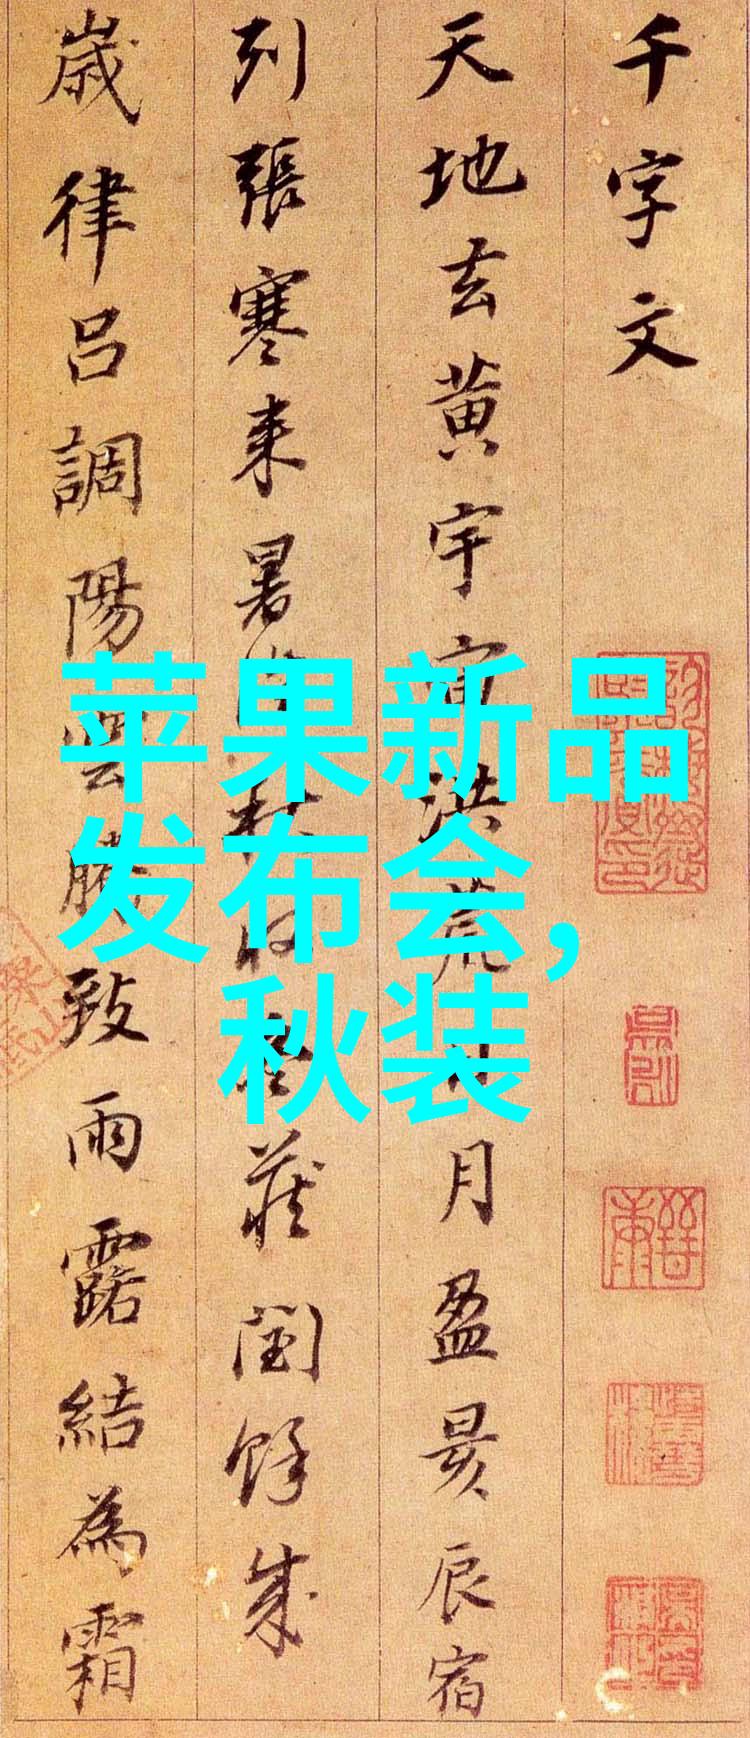 千字文
天地玄黄宇宙洪荒日月盈昃辰宿
列張寒来暑往秋收冬藏閏餘成
歲律呂調陽雲騰致雨露結為霜
苹果新品
发布会,
秋装